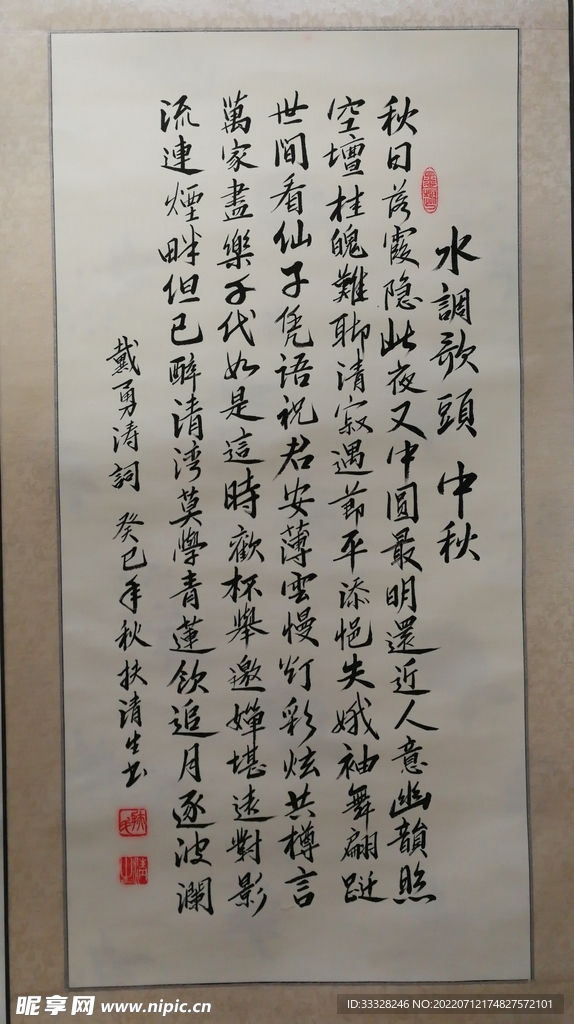 水調歌頭 中秋
秋日落霞隐此夜又中圓最明還近人意幽韻照
空壇桂魄難聊清寂遇節平添悒失娥袖舞翩跹
世間看仙子凭語祝君安薄雲慢灯彩炫共樽言
萬家盡樂千代如是這時歡杯舉邀嬋堪遠對影
流連煙畔但已醉清湾莫學青蓮飲追月逐波瀾
戴勇涛詞 癸巳年秋扶清生书
昵享网 www.nipic.cn
ID:33328246 NO:20220712174827572101